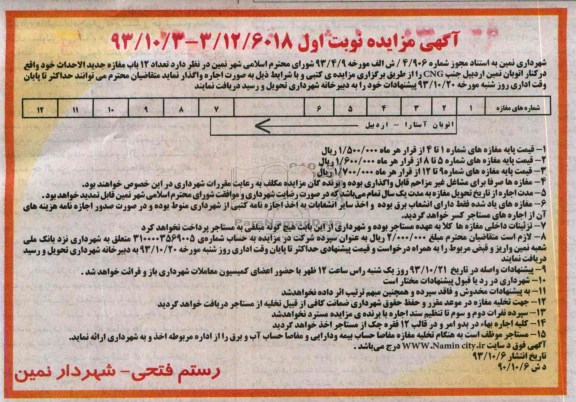 آگهی مزایده نوبت اول ۳/۱۲/۶۰۱۸-۹۳/۱۰/۳
شهرداری نمین به استناد مجوز شماره ۴/۹۰۶ ش الف مورخه ۹۳/۴/۹ شورای محترم اسلامی شهر نمین در نظر دارد تعداد ۱۲ باب مغازه جدید الاحداث خود واقع
در کنار اتوبان نمین اردبیل جنب CNG را از طریق برگزاری مزایده ی کتبی و با شرایط ذیل به صورت اجاره واگذار نماید متقاضیان محترم می توانند حداکثر تا پایان
وقت اداری روز شنبه مورخه ۹۳/۱۰/۲۰ پیشنهادات خود را به دبیرخانه شهرداری تحویل و رسید دریافت نمایند
شماره های مغازه ۱ ۲ ۳ ۴ ۵ ۶ ۷ ۸ ۹ ۱۰ ۱۱ ۱۲
اتوبان آستارا - اردبیل
۱- قیمت پایه مغازه های شماره ۱ تا ۴ از قرار هر ماه ۱/۵۰۰/۰۰۰ ریال
۲- قیمت پایه مغازه های شماره ۵ تا ۸ از قرار هر ماه ۱/۶۰۰/۰۰۰ ریال
۳- قیمت پایه مغازه های شماره ۹ تا ۱۲ از قرار هر ماه ۱/۷۰۰/۰۰۰ ریال
۴- مغازه ها صرفا برای مشاغل غیر مزاحم قابل واگذاری بوده و برنده گان مزایده مکلف به رعایت مقررات شهرداری در این خصوص خواهند بود.
۵- مدت اجاره از تاریخ تحویل مغازه به مدت یک سال تمام می‌باشد که در صورت رضایت شهرداری و موافقت شورای محترم اسلامی شهر نمین قابل تمدید خواهد بود.
۶- مغازه های یاد شده فقط دارای انشعاب برق بوده و اخذ سایر انشعابات به اخذ اجازه نامه کتبی از شهرداری منوط بوده و در صورت صدور اجازه نامه هزینه های
آن از اجاره های مستاجر کسر خواهد گردید.
۷- تزئینات داخلی مغازه ها کلا به عهده مستاجر بوده و شهرداری از این بابت هیچ گونه مبلغی به مستاجر پرداخت نخواهد کرد
۸- لازم است متقاضیان محترم مبلغ ۲/۰۰۰/۰۰۰ ریال به عنوان سپرده شرکت در مزایده به حساب شماره‌ی ۳۱۰۰۰۰۳۵۶۹۰۰۵ متعلق به شهرداری نزد بانک ملی
شعبه نمین واریز و فیش مربوط را به همراه درخواست و قیمت پیشنهادی حداکثر تا پایان وقت اداری روز شنبه مورخه ۹۳/۱۰/۲۰ به دبیرخانه شهرداری تحویل و رسید
دریافت نمایند
۹- پیشنهادات واصله در تاریخ ۹۳/۱۰/۲۱ روز یک شنبه راس ساعت ۱۲ ظهر با حضور اعضای کمیسیون معاملات شهرداری باز و قرائت خواهد شد.
۱۰- شهرداری در رد یا قبول پیشنهادات مختار است
۱۱- به پیشنهادات مخدوش و فاقد سپرده و همچنین مبهم ترتیب اثر داده نخواهدشد
۱۲- جهت تخلیه مغازه در موعد مقرر و حفظ حقوق شهرداری ضمانت کافی از قبیل تخلیه از مستاجر دریافت خواهد گردید
۱۳- سپرده نفرات دوم و سوم تا تنظیم سند اجاره با برنده ی مزایده مسترد نخواهدشد
۱۴- کلیه اجاره بهاء در بدو امر و در قالب ۱۲ فقره چک از مستاجر اخذ خواهد گردید
۱۵- مستاجر موظف است به هنگام تخلیه مغازه مفاصا حساب بیمه ودارایی و مفاصا حساب آب و برق را از اداره مربوطه اخذ و به شهرداری ارائه نماید.
آگهی فوق در سایت WWW.Namin city.ir درج می‌باشد.
تاریخ انتشار ۹۳/۱۰/۶
د ش ۹۰/۱۰/۶
رستم فتحی- شهردار نمین